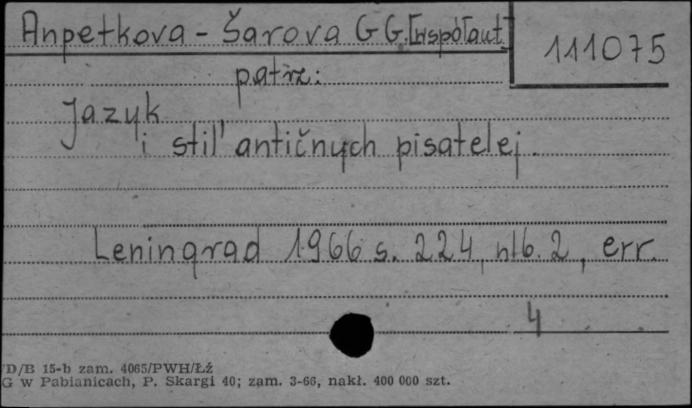 Anpetkova-Šarova G G. [współaut.]
111075
patrz:
Jazyk
i stil' antičnych pisatelej.
Leningrad 1966 s. 224, nlb. 2, err.
4
D/B 15-b zam. 4065/PWH/Łź
G w Pabianicach, P. Skargi 40; zam. 3-66, nakł. 400 000 szt.